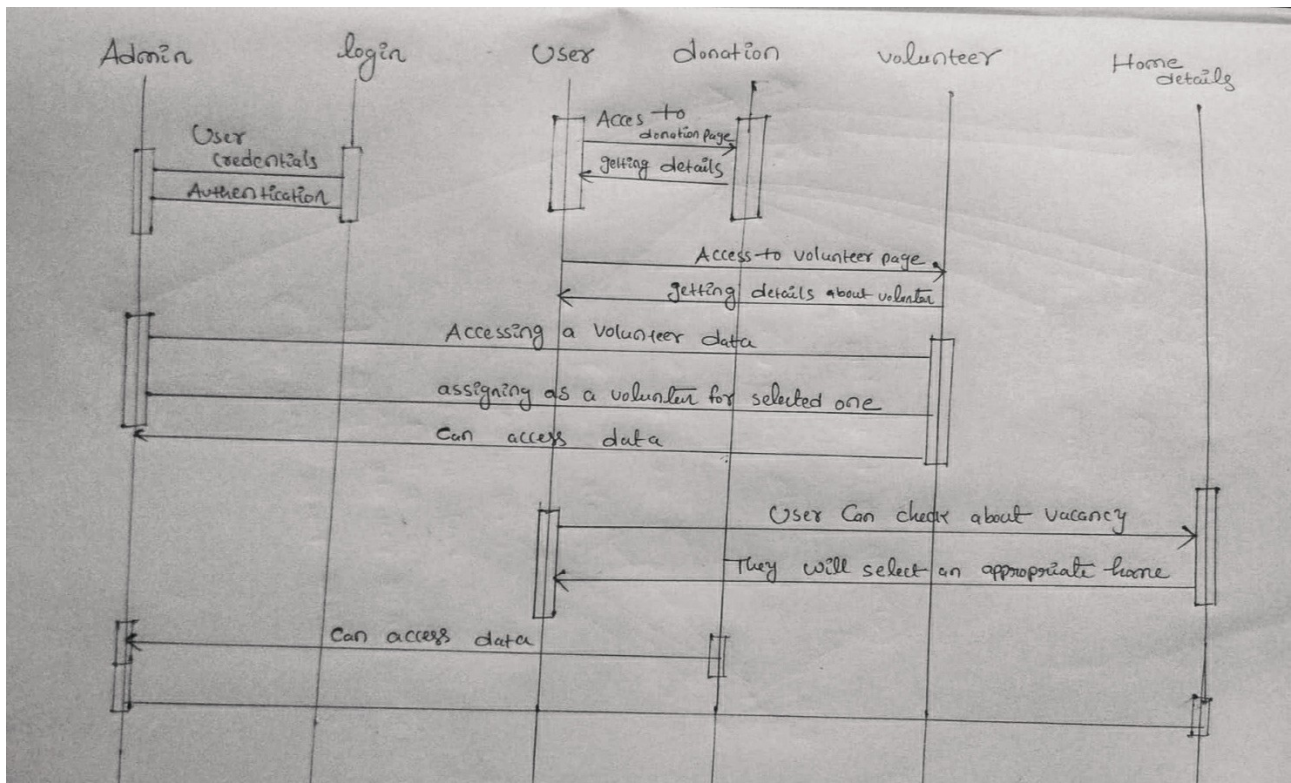 Admin
login
User
donation
volunteer
Home
details
User
credentials
Authentication
Acces to
donation page
getting details
Access to volunteer page
getting details about volunter
Accessing a volunteer data
assigning as a volunter for selected one
Can access data
User Can check about vacancy
They will select an appropriate home
Can access data